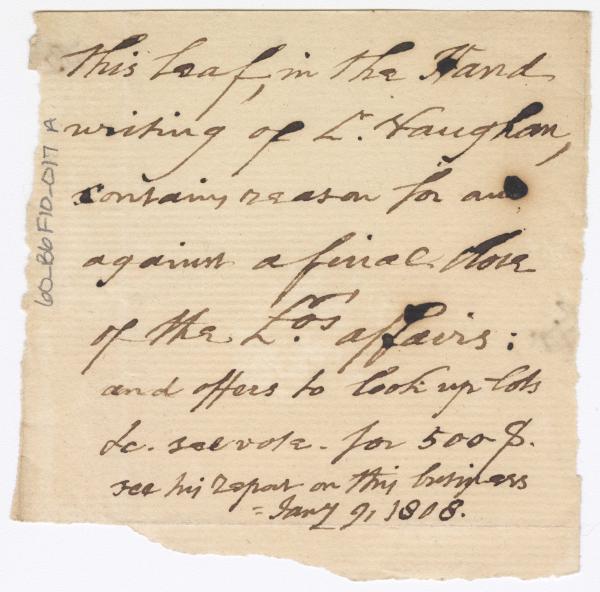 this leaf, in the Hand
writing of L. Vaughan,
contains reason for and
against a final close
of the L.ors affairs:
and offers to look up lots
&c. see vote. for 500 $.
see his report on this business
= Jany 9, 1808.
60_B6F10_017 A